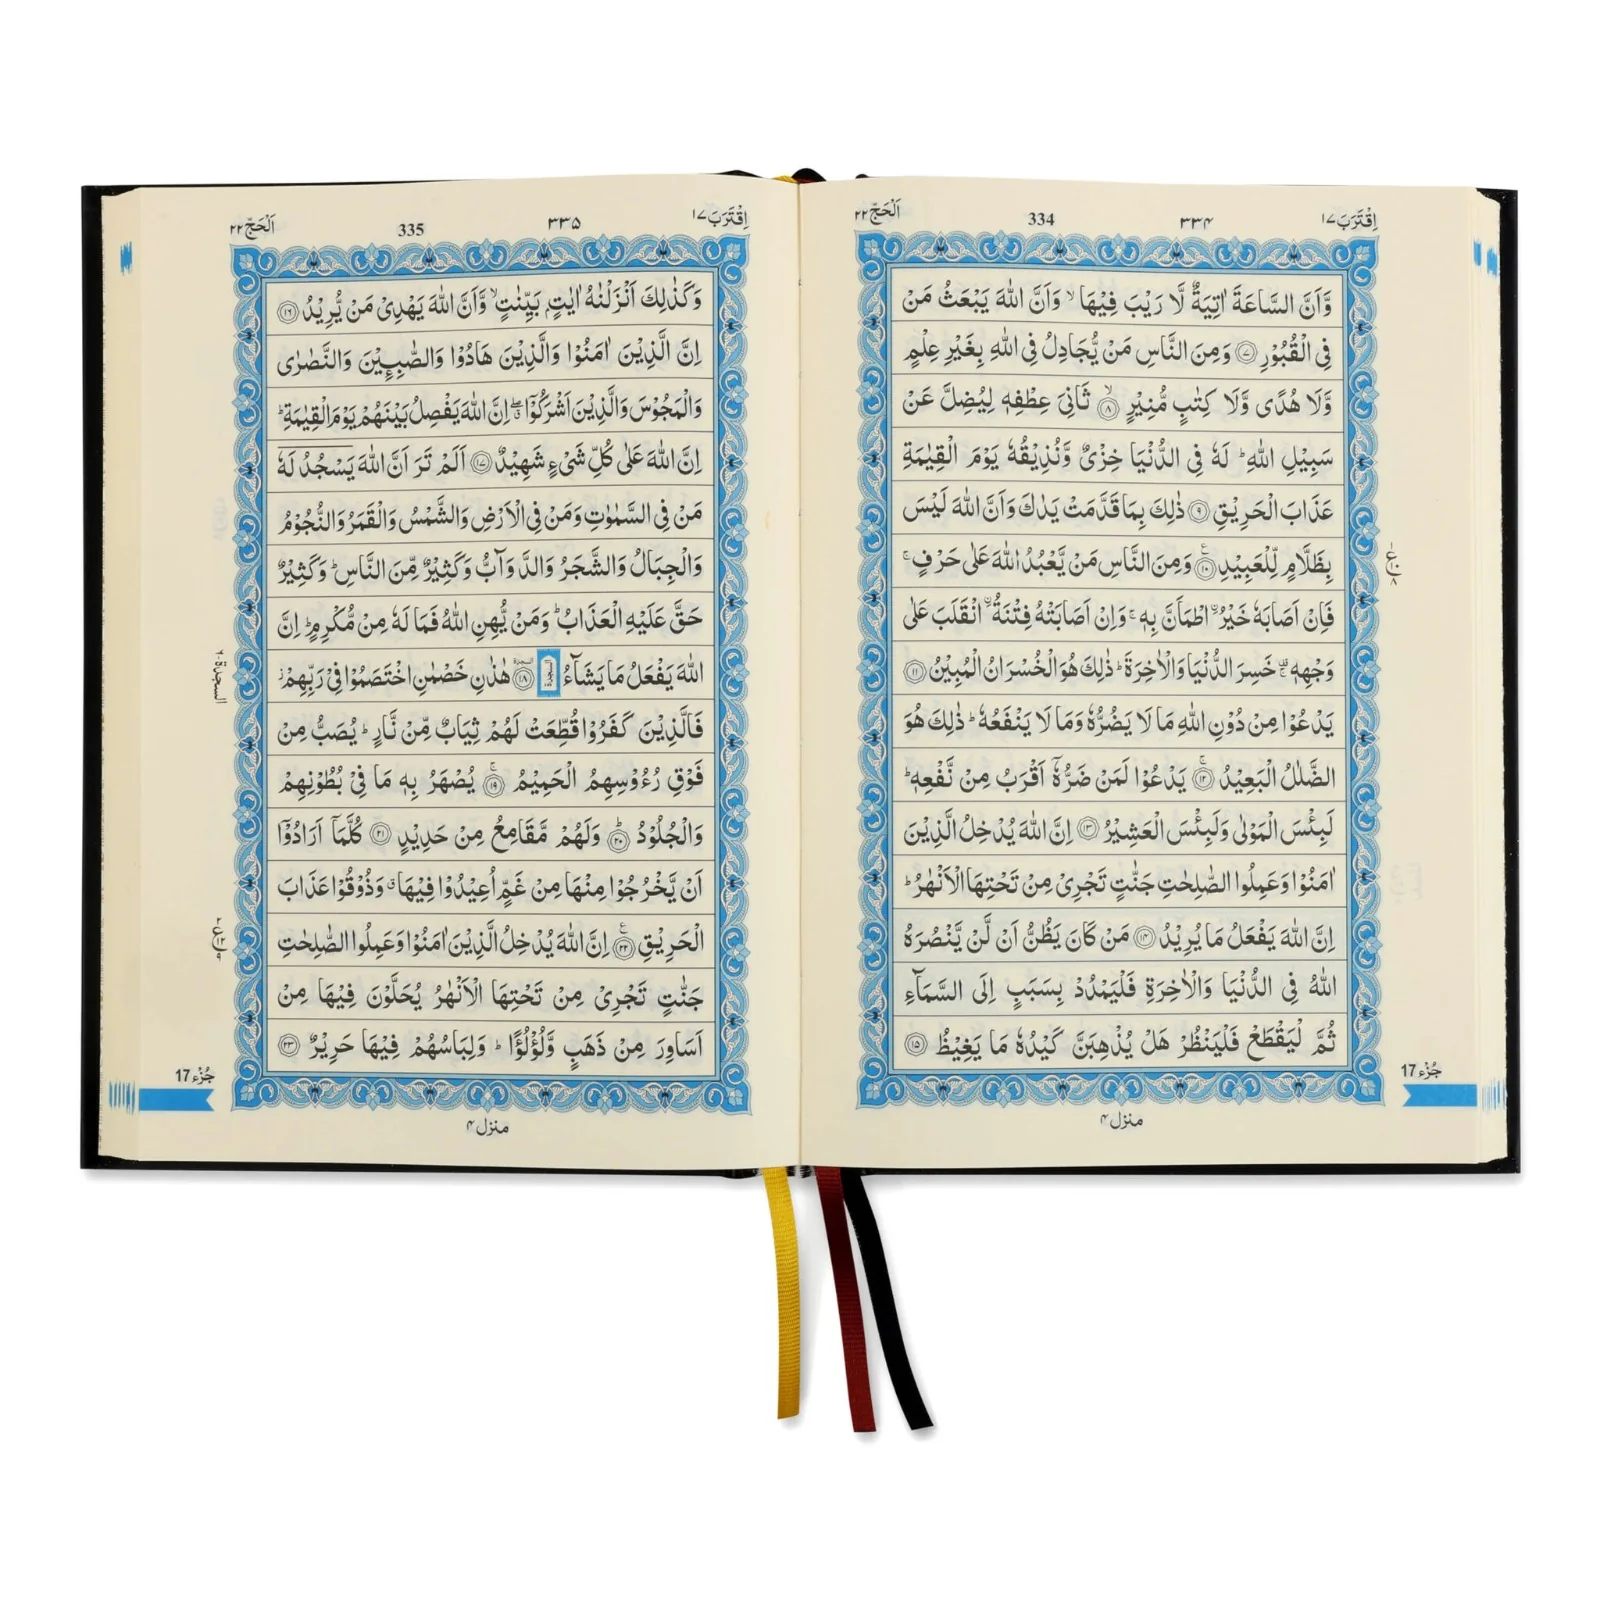 اِقْتَرَبَ ١٧
٣٣۴
334
اَلْحَجّ ٢٢
وَّاَنَّ السَّاعَةَ اٰتِيَةٌ لَّا رَيْبَ فِيْهَا ۙ وَاَنَّ اللّٰهَ يَبْعَثُ مَنْ
فِى الْقُبُوْرِ ﴿٧﴾ وَمِنَ النَّاسِ مَنْ يُّجَادِلُ فِى اللّٰهِ بِغَيْرِ عِلْمٍ
وَّلَا هُدًى وَّلَا كِتٰبٍ مُّنِيْرٍ ۙ﴿٨﴾ ثَانِىَ عِطْفِهٖ لِيُضِلَّ عَنْ
سَبِيْلِ اللّٰهِ ؕ لَهٗ فِى الدُّنْيَا خِزْىٌ وَّنُذِيْقُهٗ يَوْمَ الْقِيٰمَةِ
عَذَابَ الْحَرِيْقِ ﴿٩﴾ ذٰلِكَ بِمَا قَدَّمَتْ يَدٰكَ وَاَنَّ اللّٰهَ لَيْسَ
بِظَلَّامٍ لِّلْعَبِيْدِ ﴿١٠﴾ وَمِنَ النَّاسِ مَنْ يَّعْبُدُ اللّٰهَ عَلٰى حَرْفٍ ۚ
فَاِنْ اَصَابَهٗ خَيْرُ ۨاطْمَاَنَّ بِهٖ ۚ وَاِنْ اَصَابَتْهُ فِتْنَةُ ۨانْقَلَبَ عَلٰى
وَجْهِهٖ ۚ خَسِرَ الدُّنْيَا وَالْاٰخِرَةَ ؕ ذٰلِكَ هُوَ الْخُسْرَانُ الْمُبِيْنُ ﴿١١﴾
يَدْعُوْا مِنْ دُوْنِ اللّٰهِ مَا لَا يَضُرُّهٗ وَمَا لَا يَنْفَعُهٗ ؕ ذٰلِكَ هُوَ
الضَّلٰلُ الْبَعِيْدُ ۚ﴿١٢﴾ يَدْعُوْا لَمَنْ ضَرُّهٗٓ اَقْرَبُ مِنْ نَّفْعِهٖ ؕ
لَبِئْسَ الْمَوْلٰى وَلَبِئْسَ الْعَشِيْرُ ﴿١٣﴾ اِنَّ اللّٰهَ يُدْخِلُ الَّذِيْنَ
اٰمَنُوْا وَعَمِلُوا الصّٰلِحٰتِ جَنّٰتٍ تَجْرِىْ مِنْ تَحْتِهَا الْاَنْهٰرُ ؕ
اِنَّ اللّٰهَ يَفْعَلُ مَا يُرِيْدُ ﴿١۴﴾ مَنْ كَانَ يَظُنُّ اَنْ لَّنْ يَّنْصُرَهُ
اللّٰهُ فِى الدُّنْيَا وَالْاٰخِرَةِ فَلْيَمْدُدْ بِسَبَبٍ اِلَى السَّمَآءِ
ثُمَّ لْيَقْطَعْ فَلْيَنْظُرْ هَلْ يُذْهِبَنَّ كَيْدُهٗ مَا يَغِيْظُ ﴿١۵﴾
جُزْء 17
منزل ۴
اِقْتَرَبَ ١٧
٣٣۵
335
اَلْحَجّ ٢٢
وَكَذٰلِكَ اَنْزَلْنٰهُ اٰيٰتٍۢ بَيِّنٰتٍ ۙ وَّاَنَّ اللّٰهَ يَهْدِىْ مَنْ يُّرِيْدُ ﴿١٦﴾
اِنَّ الَّذِيْنَ اٰمَنُوْا وَالَّذِيْنَ هَادُوْا وَالصّٰبِـِٕيْنَ وَالنَّصٰرٰى
وَالْمَجُوْسَ وَالَّذِيْنَ اَشْرَكُوْٓا ۖ اِنَّ اللّٰهَ يَفْصِلُ بَيْنَهُمْ يَوْمَ الْقِيٰمَةِ ؕ
اِنَّ اللّٰهَ عَلٰى كُلِّ شَىْءٍ شَهِيْدٌ ﴿١٧﴾ اَلَمْ تَرَ اَنَّ اللّٰهَ يَسْجُدُ لَهٗ
مَنْ فِى السَّمٰوٰتِ وَمَنْ فِى الْاَرْضِ وَالشَّمْسُ وَالْقَمَرُ وَالنُّجُوْمُ
وَالْجِبَالُ وَالشَّجَرُ وَالدَّوَآبُّ وَكَثِيْرٌ مِّنَ النَّاسِ ؕ وَكَثِيْرٌ
حَقَّ عَلَيْهِ الْعَذَابُ ؕ وَمَنْ يُّهِنِ اللّٰهُ فَمَا لَهٗ مِنْ مُّكْرِمٍ ؕ اِنَّ
اللّٰهَ يَفْعَلُ مَا يَشَآءُ السجدة ﴿١٨﴾ هٰذٰنِ خَصْمٰنِ اخْتَصَمُوْا فِىْ رَبِّهِمْ ؗ
السجدة ٦
فَالَّذِيْنَ كَفَرُوْا قُطِّعَتْ لَهُمْ ثِيَابٌ مِّنْ نَّارٍ ؕ يُصَبُّ مِنْ
فَوْقِ رُءُوْسِهِمُ الْحَمِيْمُ ۚ﴿١٩﴾ يُصْهَرُ بِهٖ مَا فِىْ بُطُوْنِهِمْ
وَالْجُلُوْدُ ؕ﴿٢٠﴾ وَلَهُمْ مَّقَامِعُ مِنْ حَدِيْدٍ ﴿٢١﴾ كُلَّمَآ اَرَادُوْٓا
اَنْ يَّخْرُجُوْا مِنْهَا مِنْ غَمٍّ اُعِيْدُوْا فِيْهَا ۗ وَذُوْقُوْا عَذَابَ
الْحَرِيْقِ ﴿٢٢﴾ اِنَّ اللّٰهَ يُدْخِلُ الَّذِيْنَ اٰمَنُوْا وَعَمِلُوا الصّٰلِحٰتِ
جَنّٰتٍ تَجْرِىْ مِنْ تَحْتِهَا الْاَنْهٰرُ يُحَلَّوْنَ فِيْهَا مِنْ
اَسَاوِرَ مِنْ ذَهَبٍ وَّلُؤْلُؤًا ؕ وَلِبَاسُهُمْ فِيْهَا حَرِيْرٌ ﴿٢٣﴾
جُزْء 17
منزل ۴